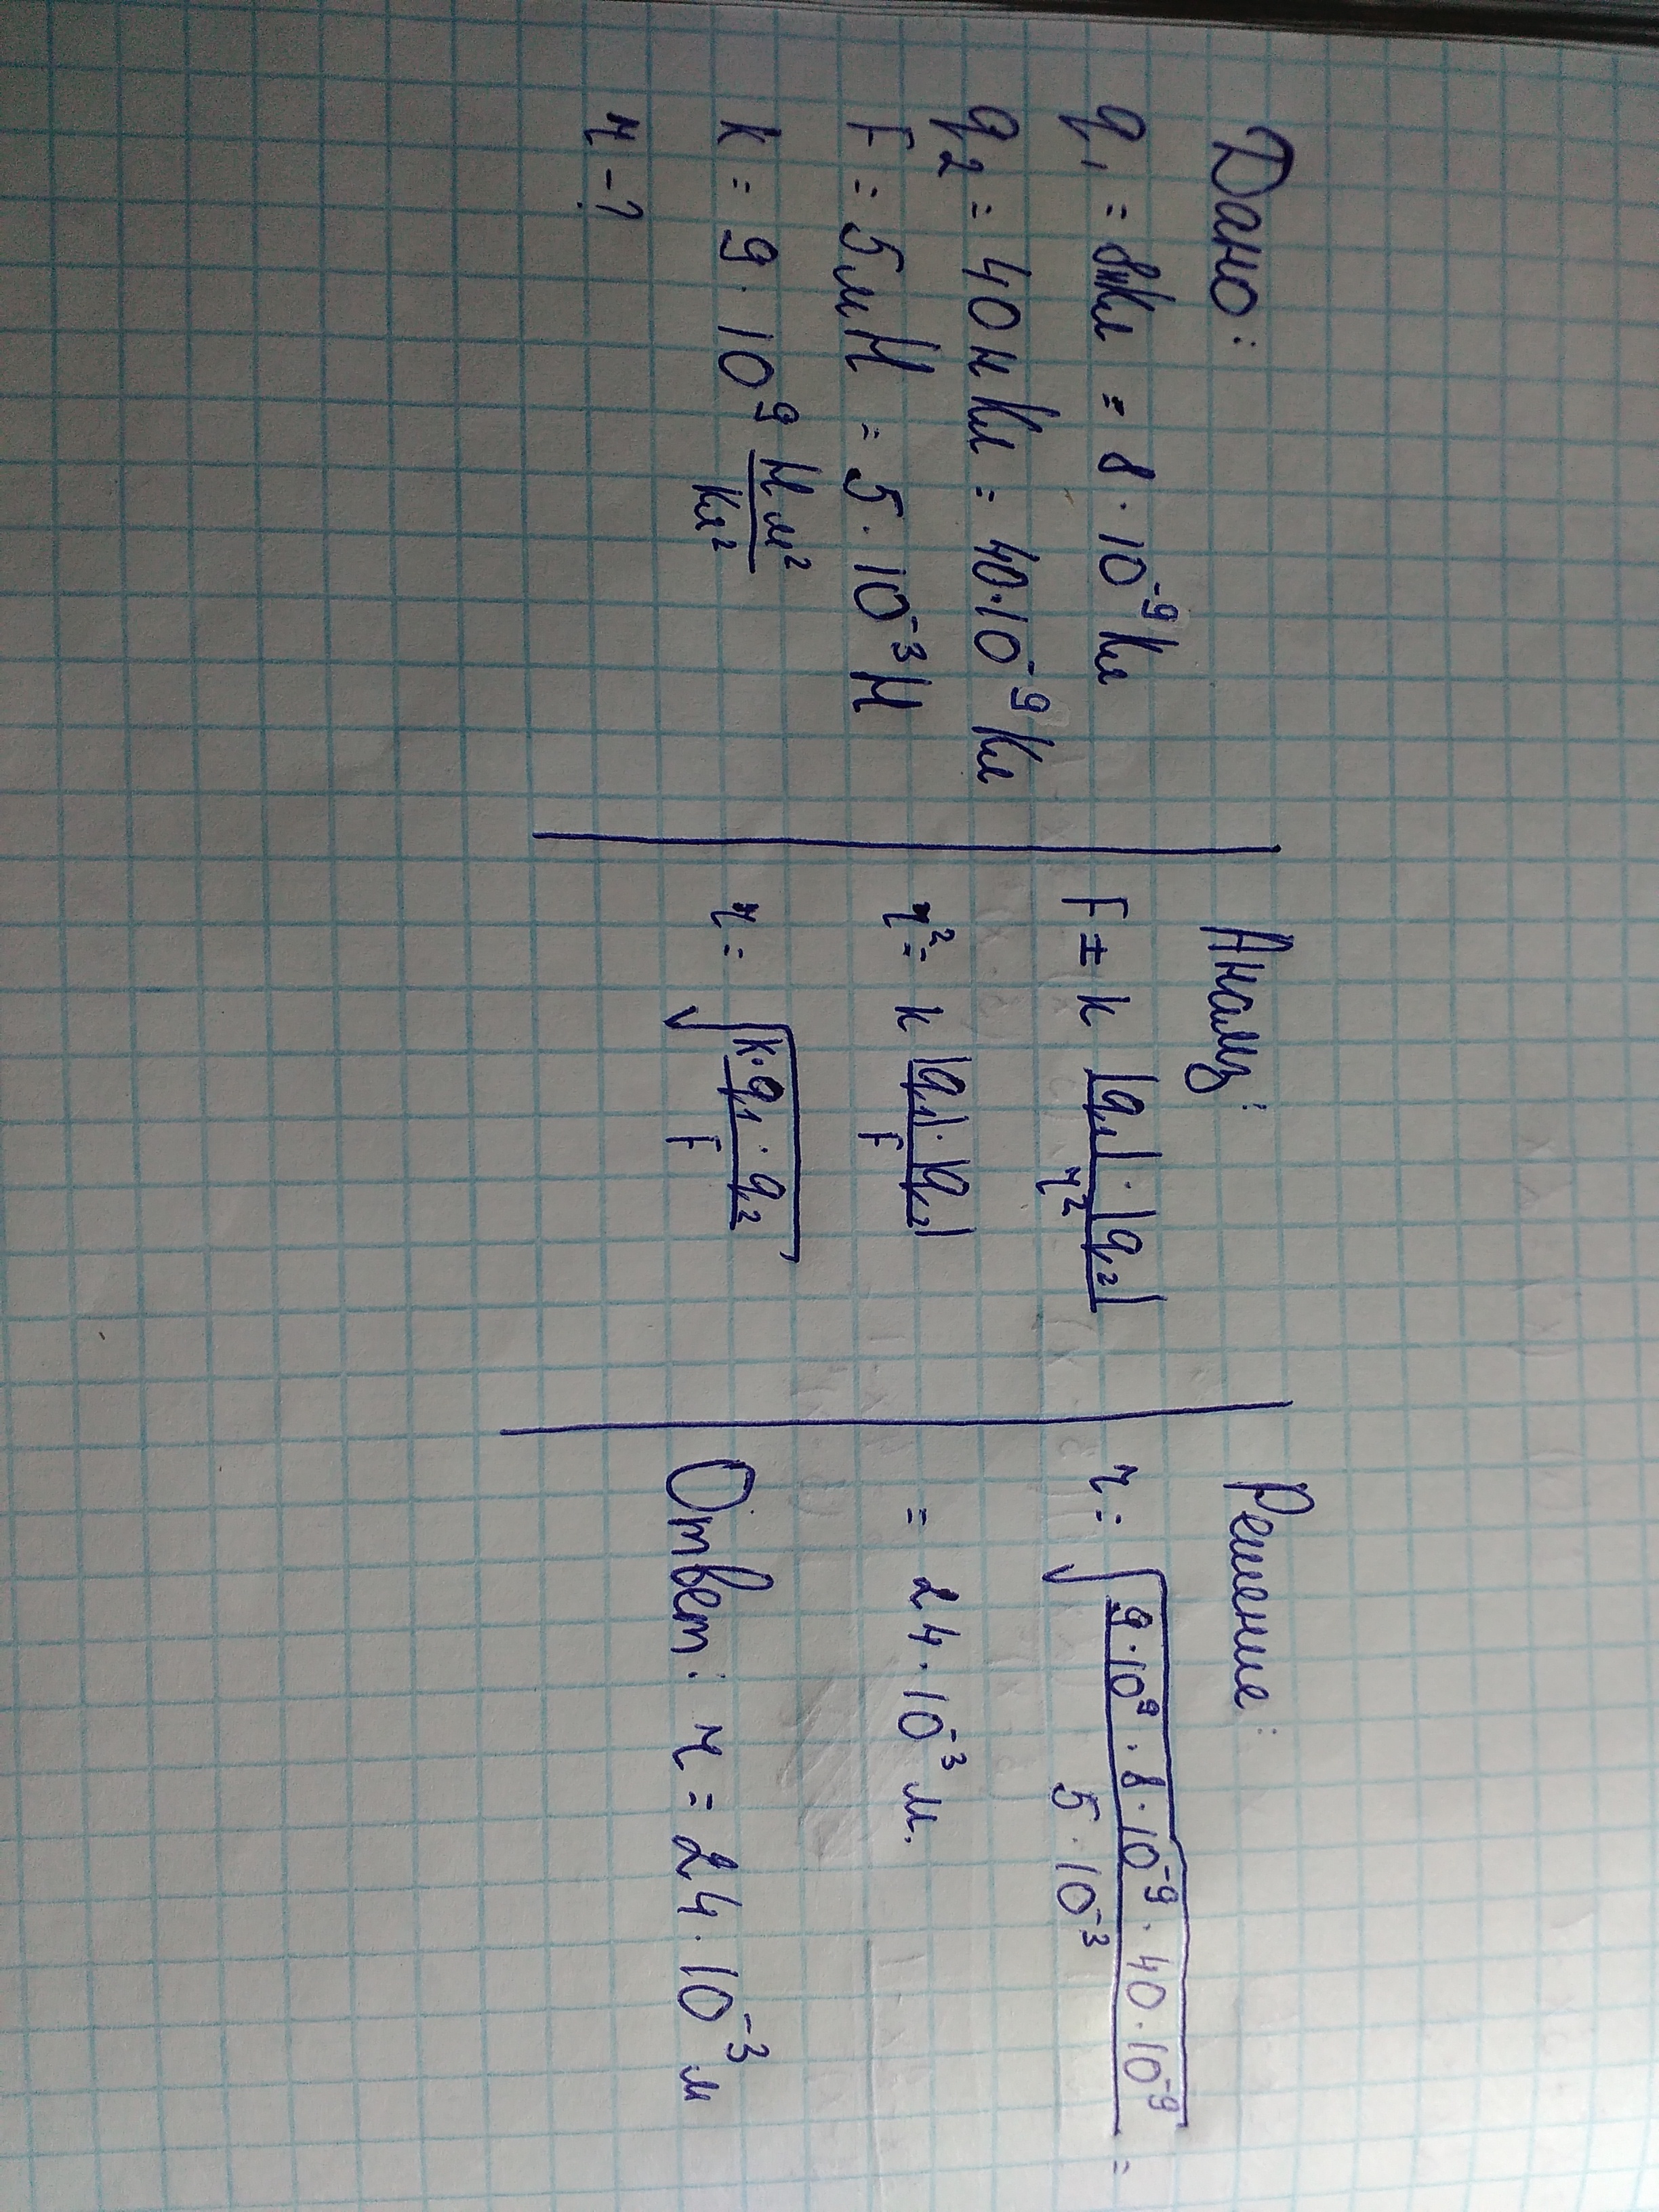 Дано:
q₁ = 8нКл = 8 · 10⁻⁹ Кл
q₂ = 40 нКл = 40·10⁻⁹ Кл
F = 5 мН = 5 · 10⁻³ Н
k = 9 · 10⁹ Нм²/Кл²
r - ?
Анализ:
F = k |q₁| · |q₂| / r²
r² = k |q₁| · |q₂| / F
r = √(k · q₁ · q₂ / F)
Решение:
r = √(9·10⁹ · 8·10⁻⁹ · 40·10⁻⁹ / 5·10⁻³) =
= 24 · 10⁻³ м.
Ответ: r = 24 · 10⁻³ м